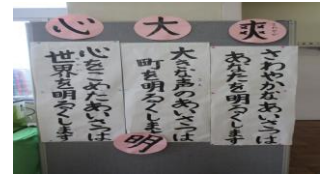 爽
さわやかなあいさつは
あなたを明るくします
大
大きな声のあいさつは
町を明るくします
心
心をこめたあいさつは
世界を明るくします
明